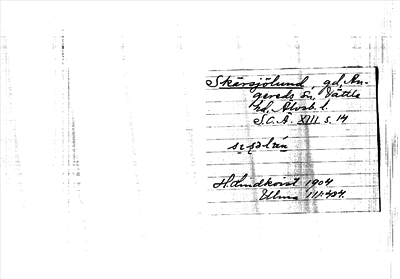 Skärsjölund gd, An-
gereds sn, Vättle
hd, Älvsb. l.
S.O.Ä. XIII s. 14

H. Lindkvist 1904
Ulma 111:404.